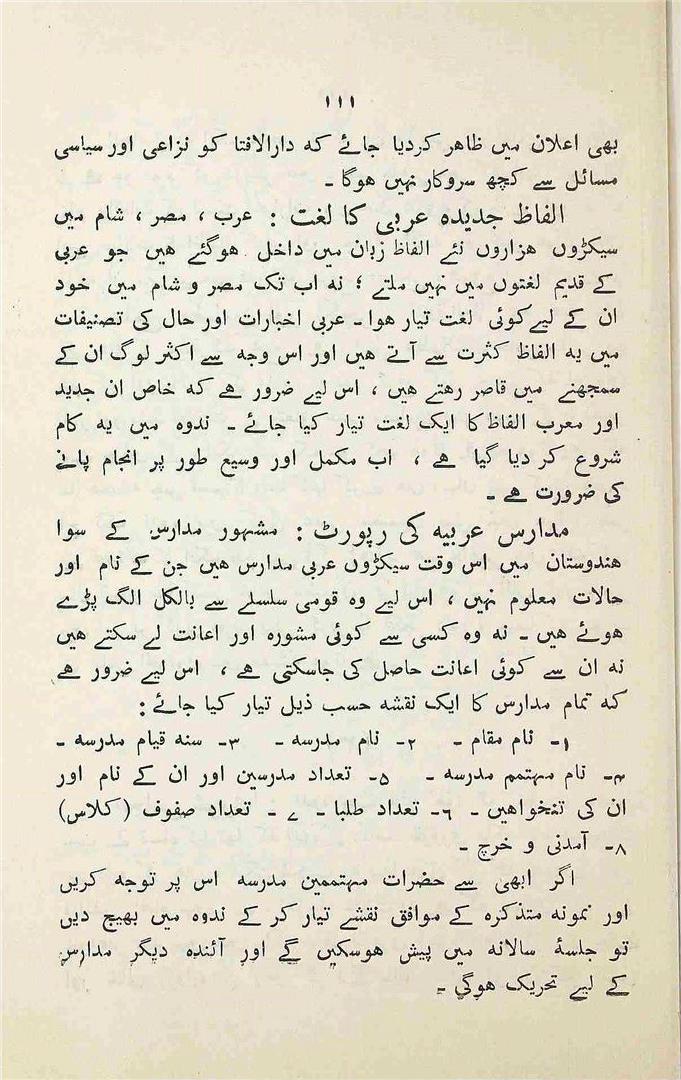 ۱۱۱
بھی اعلان میں ظاهر کردیا جائے کہ دارالافتا کو نزاعی اور سیاسی
مسائل سے کچھ سروکار نہیں ہوگا ۔
الفاظ جدیدہ عربی کا لغت : عرب ، مصر ، شام میں
سیکڑوں هزاروں نئے الفاظ زبان میں داخل هوگئے هیں جو عربی
کے قدیم لغتوں میں نہیں ملتے ؛ نہ اب تک مصر و شام میں خود
ان کے لیے کوئی لغت تیار هوا ۔ عربی اخبارات اور حال کی تصنیفات
میں یہ الفاظ کثرت سے آتے هیں اور اس وجہ سے اکثر لوگ ان کے
سمجھنے میں قاصر رهتے هیں ، اس لیے ضرور هے کہ خاص ان جدید
اور معرب الفاظ کا ایک لغت تیار کیا جائے ۔ ندوہ میں یہ کام
شروع کر دیا گیا هے ، اب مکمل اور وسیع طور پر انجام پانے
کی ضرورت هے ۔
مدارس عربیہ کی رپورٹ : مشہور مدارس کے سوا
هندوستان میں اس وقت سیکڑوں عربی مدارس هیں جن کے نام اور
حالات معلوم نہیں ، اس لیے وہ قومی سلسلے سے بالکل الگ پڑے
هوئے هیں ۔ نہ وہ کسی سے کوئی مشورہ اور اعانت لے سکتے هیں
نہ ان سے کوئی اعانت حاصل کی جاسکتی هے ، اس لیے ضرور هے
کہ تمام مدارس کا ایک نقشہ حسب ذیل تیار کیا جائے :
۱۔ نام مقام ۔ ۲۔ نام مدرسہ ۔ ۳۔ سنہ قیام مدرسہ ۔
۴۔ نام مہتمم مدرسہ ۔ ۵۔ تعداد مدرسین اور ان کے نام اور
ان کی تنخواهیں ۔ ۶۔ تعداد طلبا ۔ ۷ ۔ تعداد صفوف (کلاس)
۸۔ آمدنی و خرچ ۔
اگر ابھی سے حضرات مہتممین مدرسہ اس پر توجہ کریں
اور نمونہ متذکرہ کے موافق نقشے تیار کر کے ندوہ میں بھیج دیں
تو جلسۂ سالانہ میں پیش هوسکیں گے اور آئندہ دیگر مدارس
کے لیے تحریک هوگی ۔